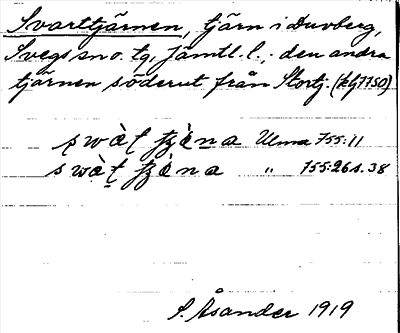 Svarttjärnen, tjärn i Duvberg,
Svegs sn o. tg, Jämtl. l., den andra
tjärnen söderut från Stortj. (bl 7750)
swàt̨ ʈʐè̱na Ulma 755:11
swàt̨ ʈʐè̱na " 755:26 s. 38
S. Åsander 1919